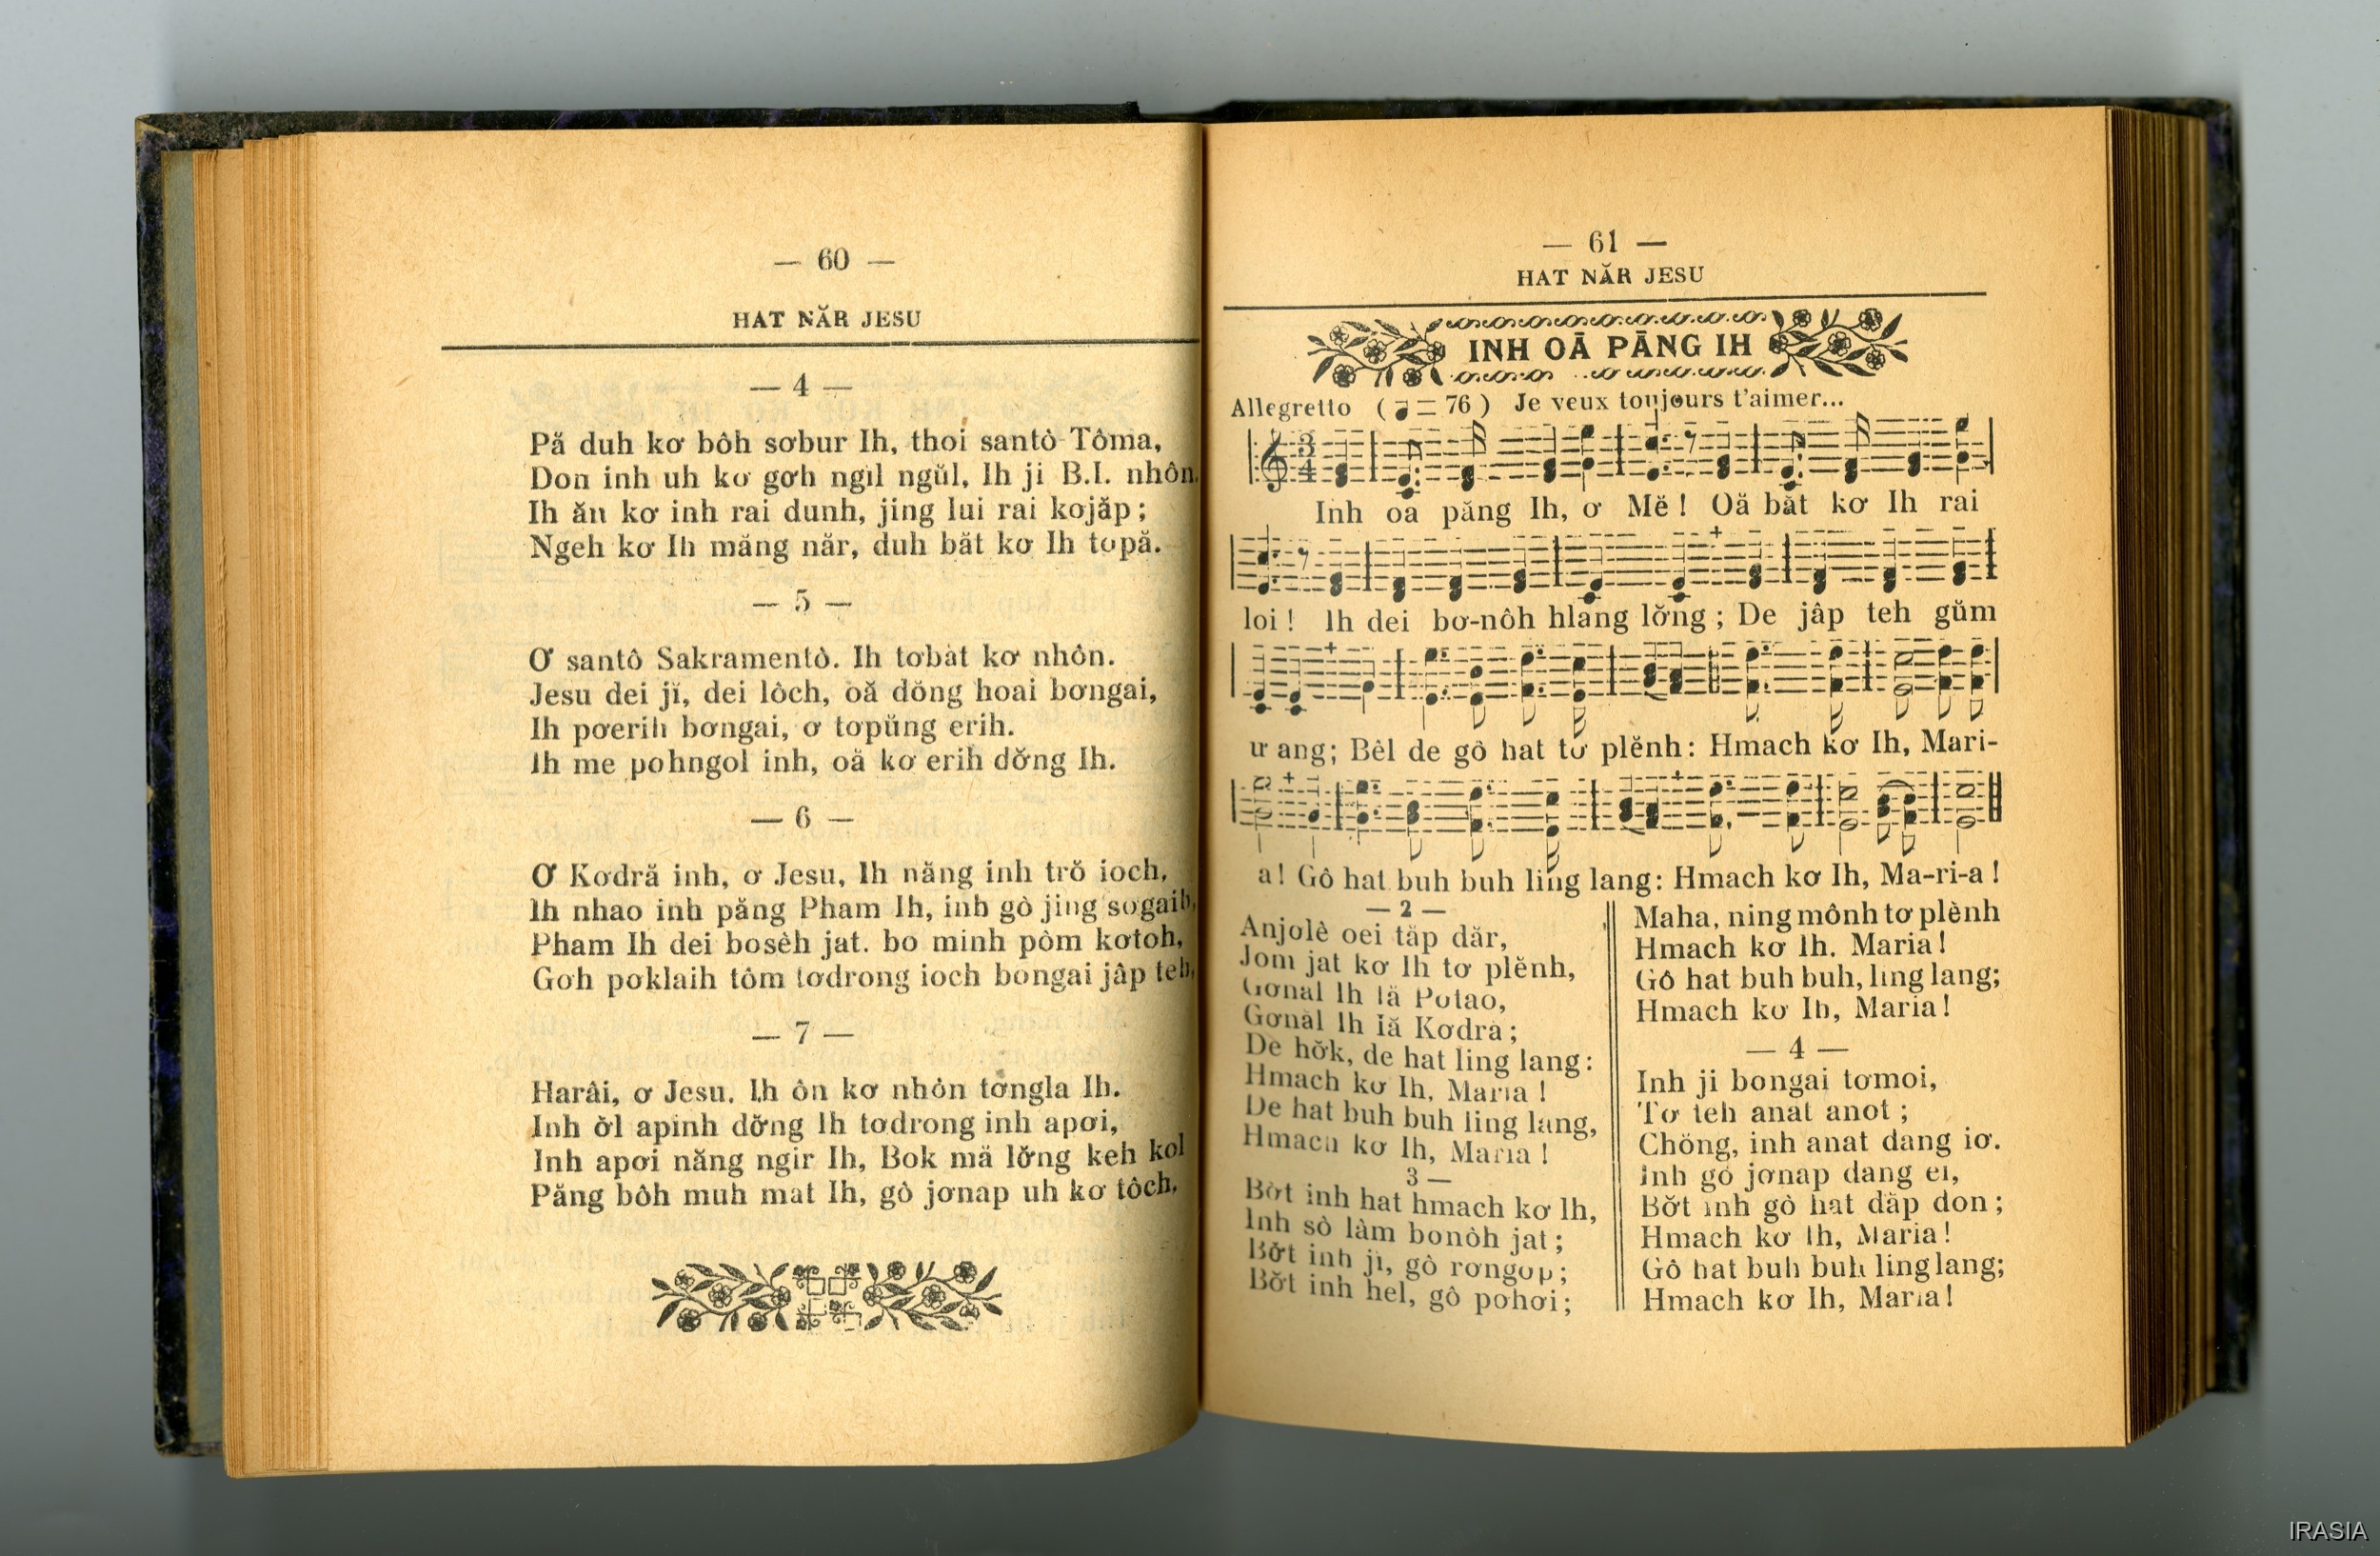 — 60 —
HAT NĂR JESU
— 4 —
Pă duh kơ bôh sơbur Ih, thoi santô Tôma,
Don inh uh kơ gơh ngil ngŭl, Ih ji B.I. nhôn.
Ih ăn kơ inh rai dunh, jing lui rai kơjăp;
Ngeh kơ Ih măng năr, duh băt kơ Ih tơpă.
— 5 —
Ơ santô Sakramentô. Ih tơbăt kơ nhôn.
Jesu dei jĭ, dei lôch, oă dŏng hoai bơngai,
Ih pơerih bơngai, ơ tơpŭng erih.
Ih me pohngol inh, oă kơ erih dơ̆ng Ih.
— 6 —
Ơ Kơdră inh, ơ Jesu, Ih năng inh trŏ ioch,
Ih nhao inh păng Pham Ih, inh gô jing sơgaih,
Pham Ih dei bosêh jat. bo minh pôm kơtoh,
Gơh pơklaih tôm tơdrong ioch bongai jâp teh,
— 7 —
Harâi, ơ Jesu. Ih ôn kơ nhôn tơngla Ih.
Inh ơ̆l apinh dơ̆ng Ih tơdrong inh apơi,
Inh apơi năng ngir Ih, Bok mă lơ̆ng keh kol
Păng bôh muh mat Ih, gô jơnap uh kơ tôch,
— 61 —
HAT NĂR JESU
INH OĂ PĂNG IH
Allegretto ( ♩ = 76 ) Je veux toujours t'aimer...
Inh oă păng Ih, ơ Mĕ ! Oă băt kơ Ih rai
loi ! Ih dei bơ-nôh hlâng lơ̆ng ; De jâp teh gŭm
ư ang; Bêl de gô hat tơ plĕnh : Hmach kơ Ih, Mari-
a ! Gô hat buh buh ling lang : Hmach kơ Ih, Ma-ri-a !
— 2 —
Anjolê oei tăp dăr,
Jom jat kơ Ih tơ plĕnh,
Gơnal Ih lă Potao,
Gơnal Ih lă Kơdră ;
De hơ̆k, de hat ling lang :
Hmach kơ Ih, Maria !
De hat buh buh ling lang,
Hmach kơ Ih, Maria !
3 —
Bơ̆t inh hat hmach kơ Ih,
Inh sô lâm bonôh jat ;
Bơ̆t inh jĭ, gô rơngơp ;
Bơ̆t inh hel, gô pơhơi ;
Maha, ning mônh tơ plĕnh
Hmach kơ Ih. Maria !
Gô hat buh buh, ling lang;
Hmach kơ Ih, Maria !
— 4 —
Inh ji bongai tơmoi,
Tơ teh anat anot ;
Chŏng, inh anat dang iơ.
Inh gô jơnap dang ei,
Bơ̆t inh gô hat dăp don ;
Hmach kơ Ih, Maria !
Gô hat buh buh ling lang;
Hmach kơ Ih, Maria !
IRASIA